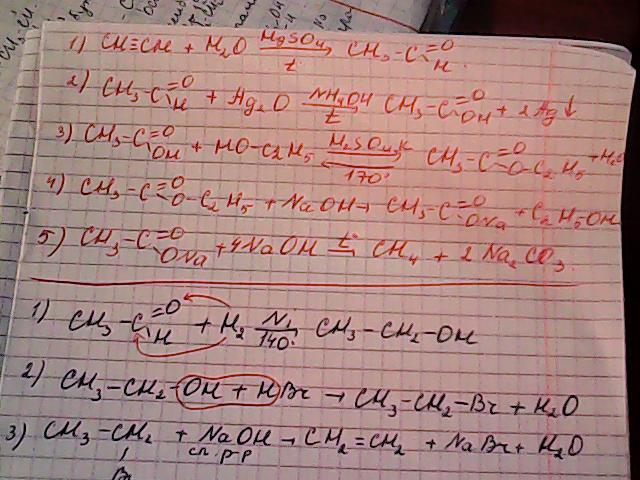 1) CH≡CH + H2O HgSO4 t CH3-C=O H.
2) CH3-C=O H + Ag2O NH4OH t CH3-C=O OH + 2Ag↓
3) CH3-C=O OH + HO-C2H5 H2SO4 K 170° CH3-C=O O-C2H5 + H2O
4) CH3-C=O O-C2H5 + NaOH → CH3-C=O ONa + C2H5OH
5) CH3-C=O ONa + 4NaOH t° CH4 + 2Na2CO3.
1) CH3-C=O H + H2 Ni 140° CH3-CH2-OH
2) CH3-CH2-OH + HBr → CH3-CH2-Br + H2O
3) CH3-CH2 + NaOH → CH2=CH2 + NaBr + H2O
сп. р-р
Br